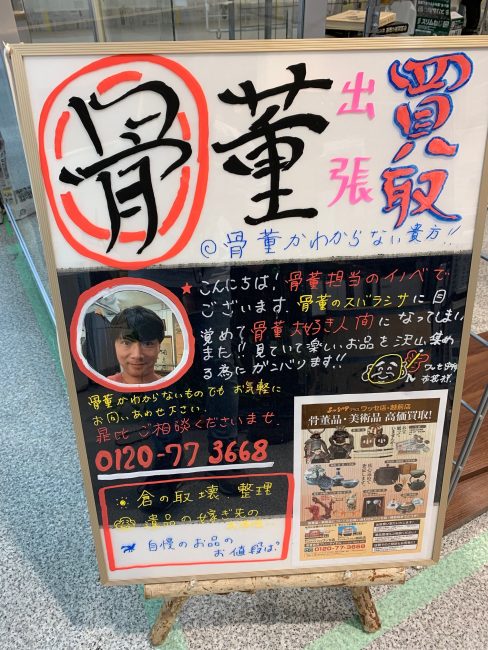 骨董 出張 買取
◎骨董がわからない貴方!!
★こんにちは!骨董担当のイノベで
ございます 骨董のスバラシサに目
覚めて骨董大好き人間になってしまい
ました!!見ていて楽しいお品を沢山集め
る為にガンバリます!!
骨董かわからないものでもお気軽に
お問いあわせ下さい。
是非ご相談くださいませ
0120-77 3668
倉の取壊 整理
遺品の嫁ぎ先の
自慢のお品の
お値段は?
骨董品・美術品 高価買取!
0120-77-3668